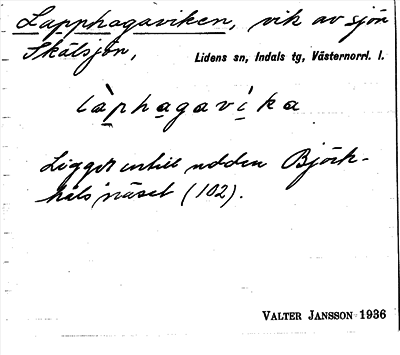 Lapphagaviken, vik av sjön
Skälsjön, Lidens sn, Indals tg, Västernorrl. l.
làphagavíka
Ligger intill udden Björk-
häls näset (102).
VALTER JANSSON 1936